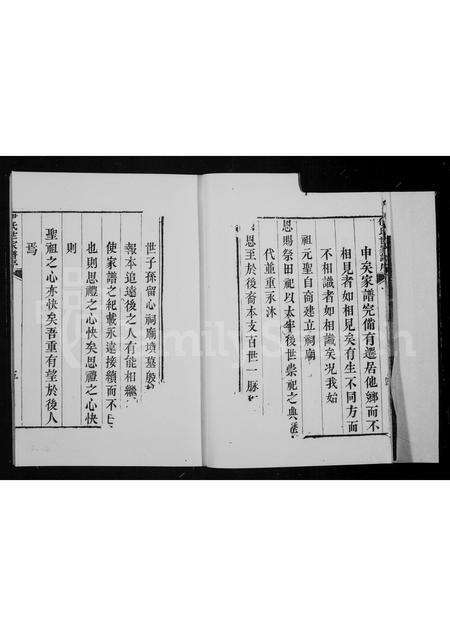 申矣家譜完備有遷居他鄉而不
相見者如相見矣有生不同方而
不相識者如相識矣况我始
祖元聖自商建立祠廟
恩賜祭田祀以太牢後世崇祀之典
代並重承沐
恩至於後裔本支百世一脉
世子孫留心祠廟墳墓殷
報本追遠後之人有能相繼
使家譜之紀載永遠接續而不
也則恩禮之心快矣恩禮之心快
則
聖祖之心亦快矣吾重有望於後人
焉